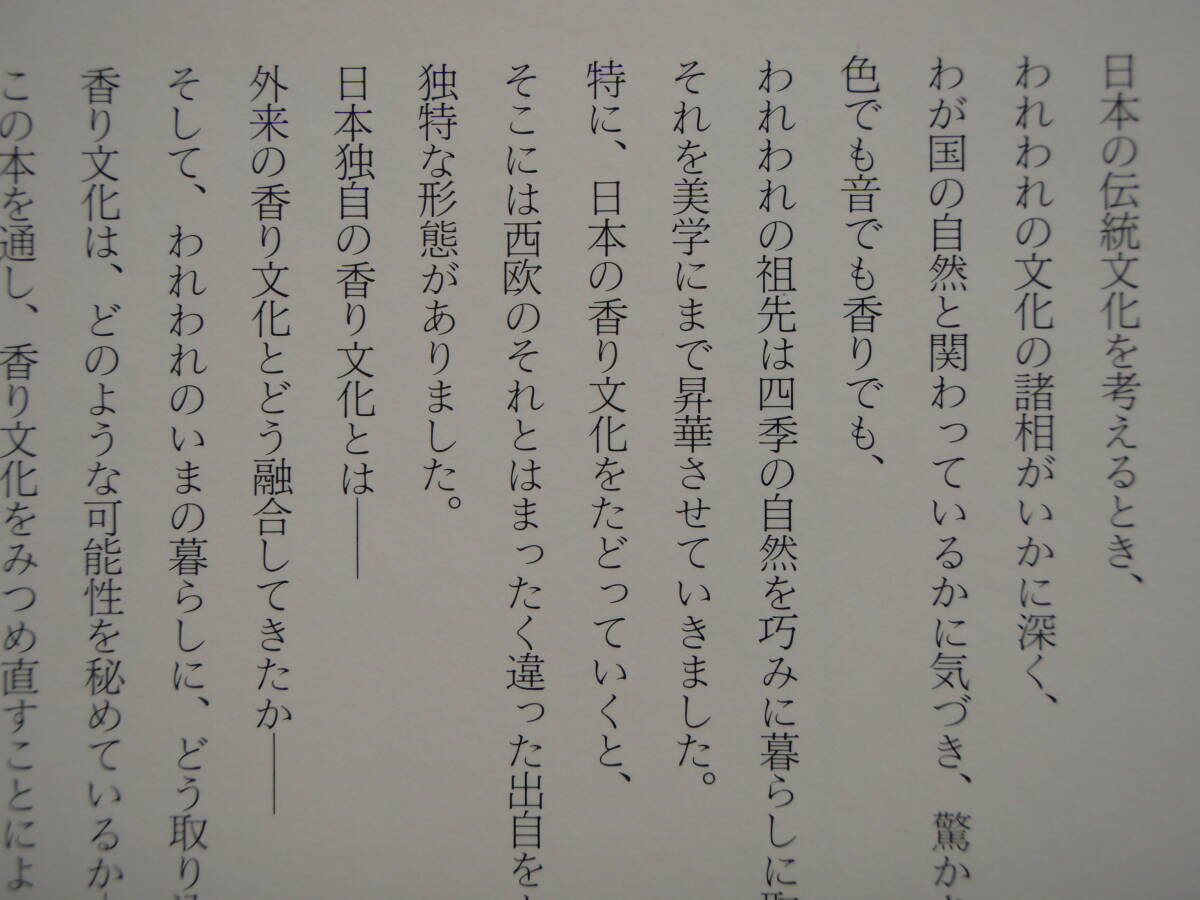 日本の伝統文化を考えるとき、
われわれの文化の諸相がいかに深く、
わが国の自然と関わっているかに気づき、驚か
色でも音でも香りでも、
われわれの祖先は四季の自然を巧みに暮らしに取
それを美学にまで昇華させていきました。
特に、日本の香り文化をたどっていくと、
そこには西欧のそれとはまったく違った出自を
独特な形態がありました。
日本独自の香り文化とは——
外来の香り文化とどう融合してきたか——
そして、われわれのいまの暮らしに、どう取り
香り文化は、どのような可能性を秘めているか
この本を通し、香り文化をみつめ直すことによ